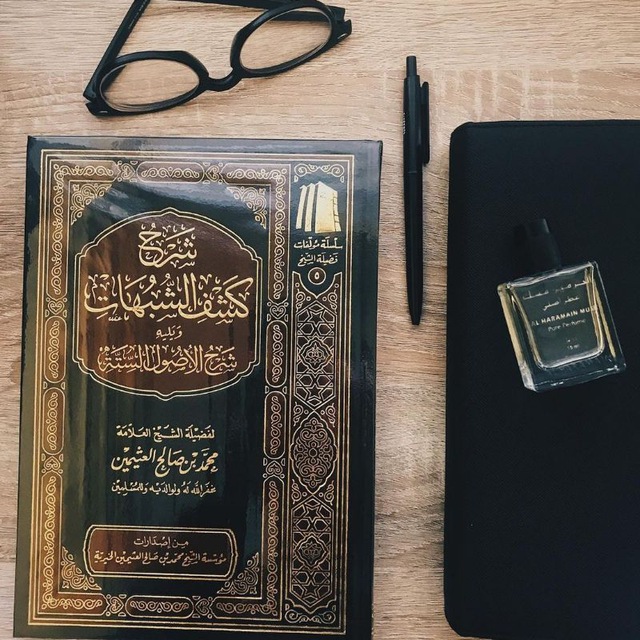 سلسلة مؤلفات
فضيلة الشيخ
٥
شرح
كشف الشبهات
ويليه
شرح الأصول الستة
لفضيلة الشيخ العلامة
محمد بن صالح العثيمين
غفر الله له ولوالديه وللمسلمين
من إصدارات
مؤسسة الشيخ محمد بن صالح العثيمين الخيرية
AL HARAMAIN MU
Pure Perfume